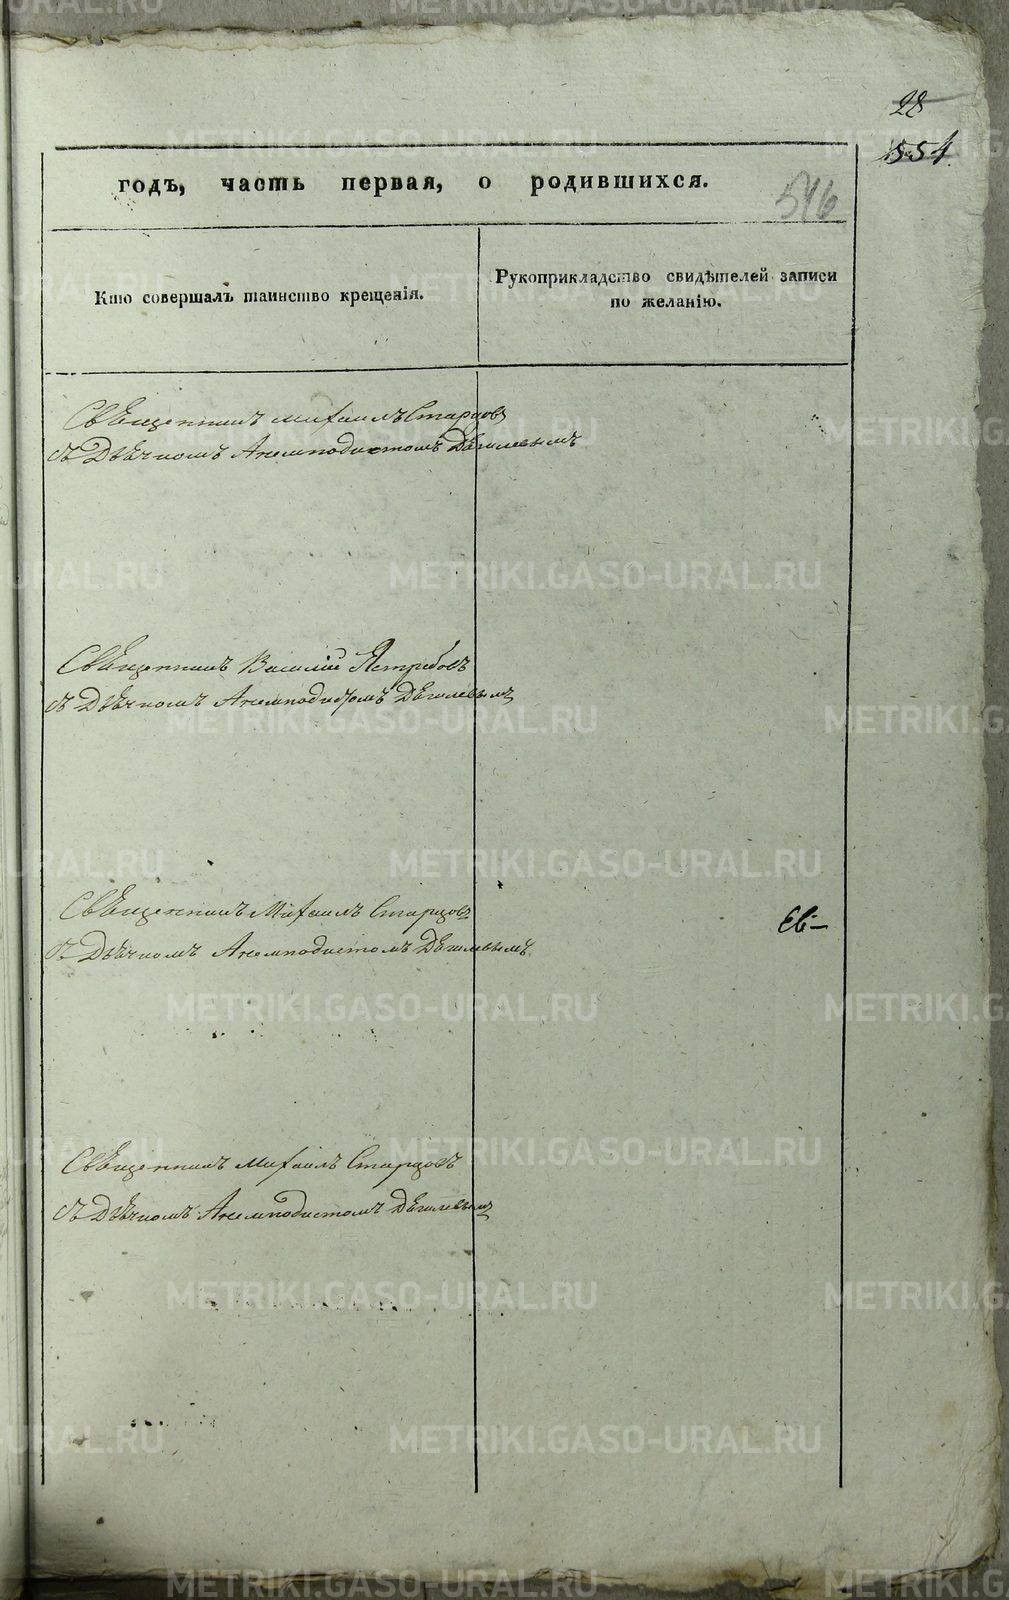 28
554.
546
годъ, часть первая, о родившихся.
Кто совершалъ таинство крещенія.
Рукоприкладство свидѣтелей записи
по желанію.
Священникъ Михаилъ Старцовъ
съ Дьячкомъ Анемподистомъ Дѣгилевымъ
Священникъ Василій Ястребовъ
съ Дьячкомъ Анемподистомъ Дѣгилевымъ
Священникъ Михаилъ Старцовъ
съ Дьячкомъ Анемподистомъ Дѣгилевымъ
Священникъ Михаилъ Старцовъ
съ Дьячкомъ Анемподистомъ Дѣгилевымъ
METRIKI.GASO-URAL.RU